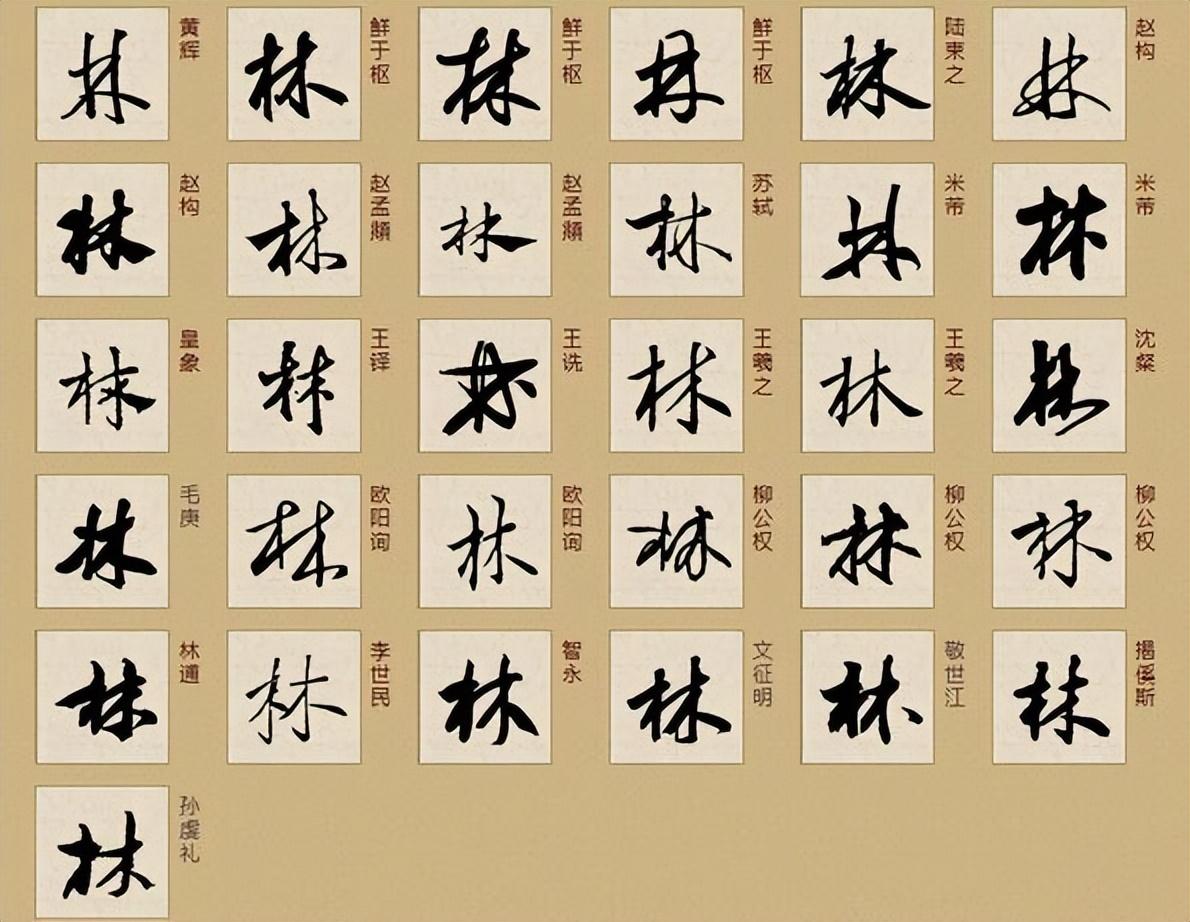 林 黄辉
林 鲜于枢
林 鲜于枢
林 鲜于枢
林 陆柬之
林 赵构
林 赵构
林 赵孟頫
林 赵孟頫
林 苏轼
林 米芾
林 米芾
林 皇象
林 王铎
林 王诜
林 王羲之
林 王羲之
林 沈粲
林 毛庚
林 欧阳询
林 欧阳询
林 柳公权
林 柳公权
林 柳公权
林 林逋
林 李世民
林 智永
林 文征明
林 敬世江
林 揭傒斯
林 孙虔礼